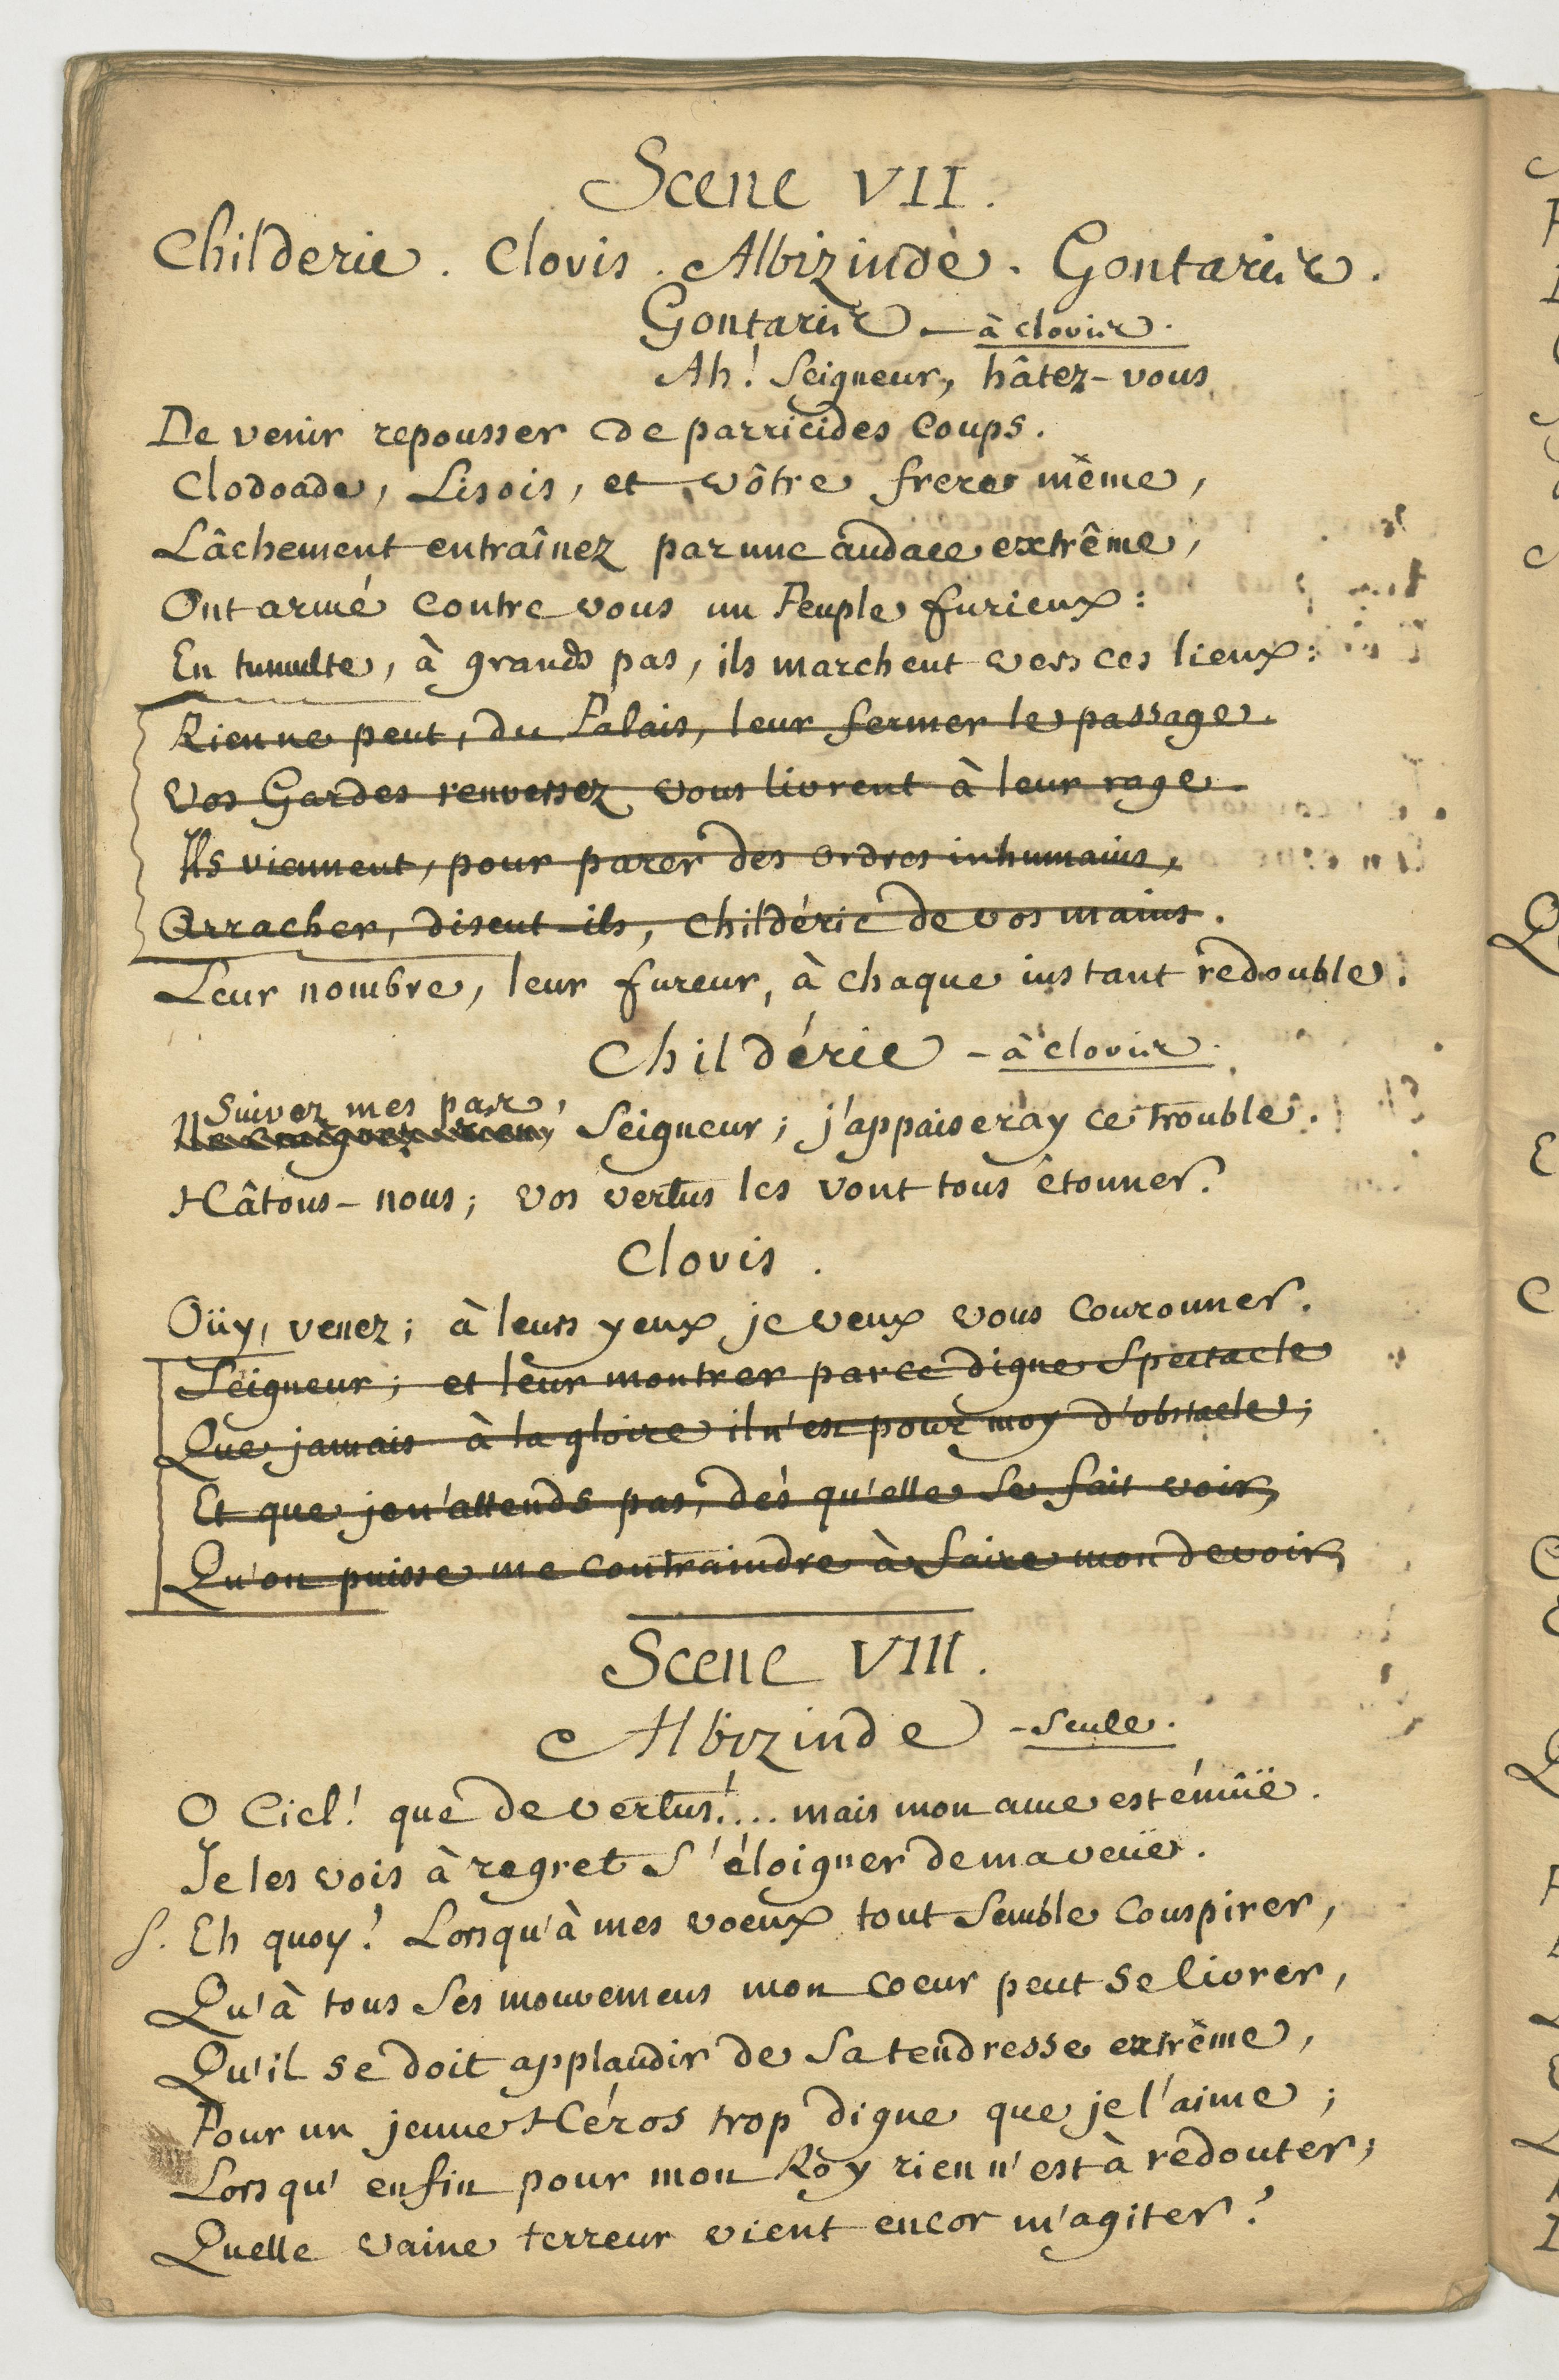 Scene VII.
Childeric. Clovis. Albizinde. Gontaris.
Gontaris - à clovis.
Ah! Seigneur, hâtez-vous
De venir repousser de parricides Coups.
Clodoade, Lisois, et vôtre frere même,
Lâchement entraînez par une audace extrême,
Ont armé Contre vous un Peuple furieux:
En tumulte, à grands pas, ils marchent vers ces lieux:
Rien ne peut, du Palais, leur fermer le passage.
Vos Gardes renversez vous livrent à leur rage.
Ils viennent, pour parer des ordres inhumains,
Arracher, disent-ils, Childéric de vos mains.
Leur nombre, leur fureur, à chaque instant redouble.
Childéric - à clovis.
Suivez mes pas,
Ne Craignez rien, Seigneur; j'appaiseray ce trouble.
Hâtons-nous; vos vertus les vont tous êtonner.
Clovis.
Oüy, venez; à leurs yeux je veux vous Couronner.
Seigneur; et leur montrer par ce digne Spectacle
Que jamais à la gloire il n'est pour moy d'obstacle;
Et que je n'attends pas, dés qu'elle Se fait voir,
Qu'on puisse me contraindre à faire mon devoir,
Scene VIII.
Albizinde - Seule.
O Ciel! que de vertus!.... mais mon ame est émüe.
Je les vois à regret S'éloigner de ma veüe.
S. Eh quoy! Lorsqu'à mes voeux tout Semble Conspirer,
Qu'à tous Ses mouvemens mon Coeur peut se livrer,
Qu'il se doit applaudir de Sa tendresse extrême,
Pour un jeune Héros trop digne que je l'aime;
Lorsqu'enfin pour mon Roy rien n'est à redouter;
Quelle vaine terreur vient encor m'agiter?